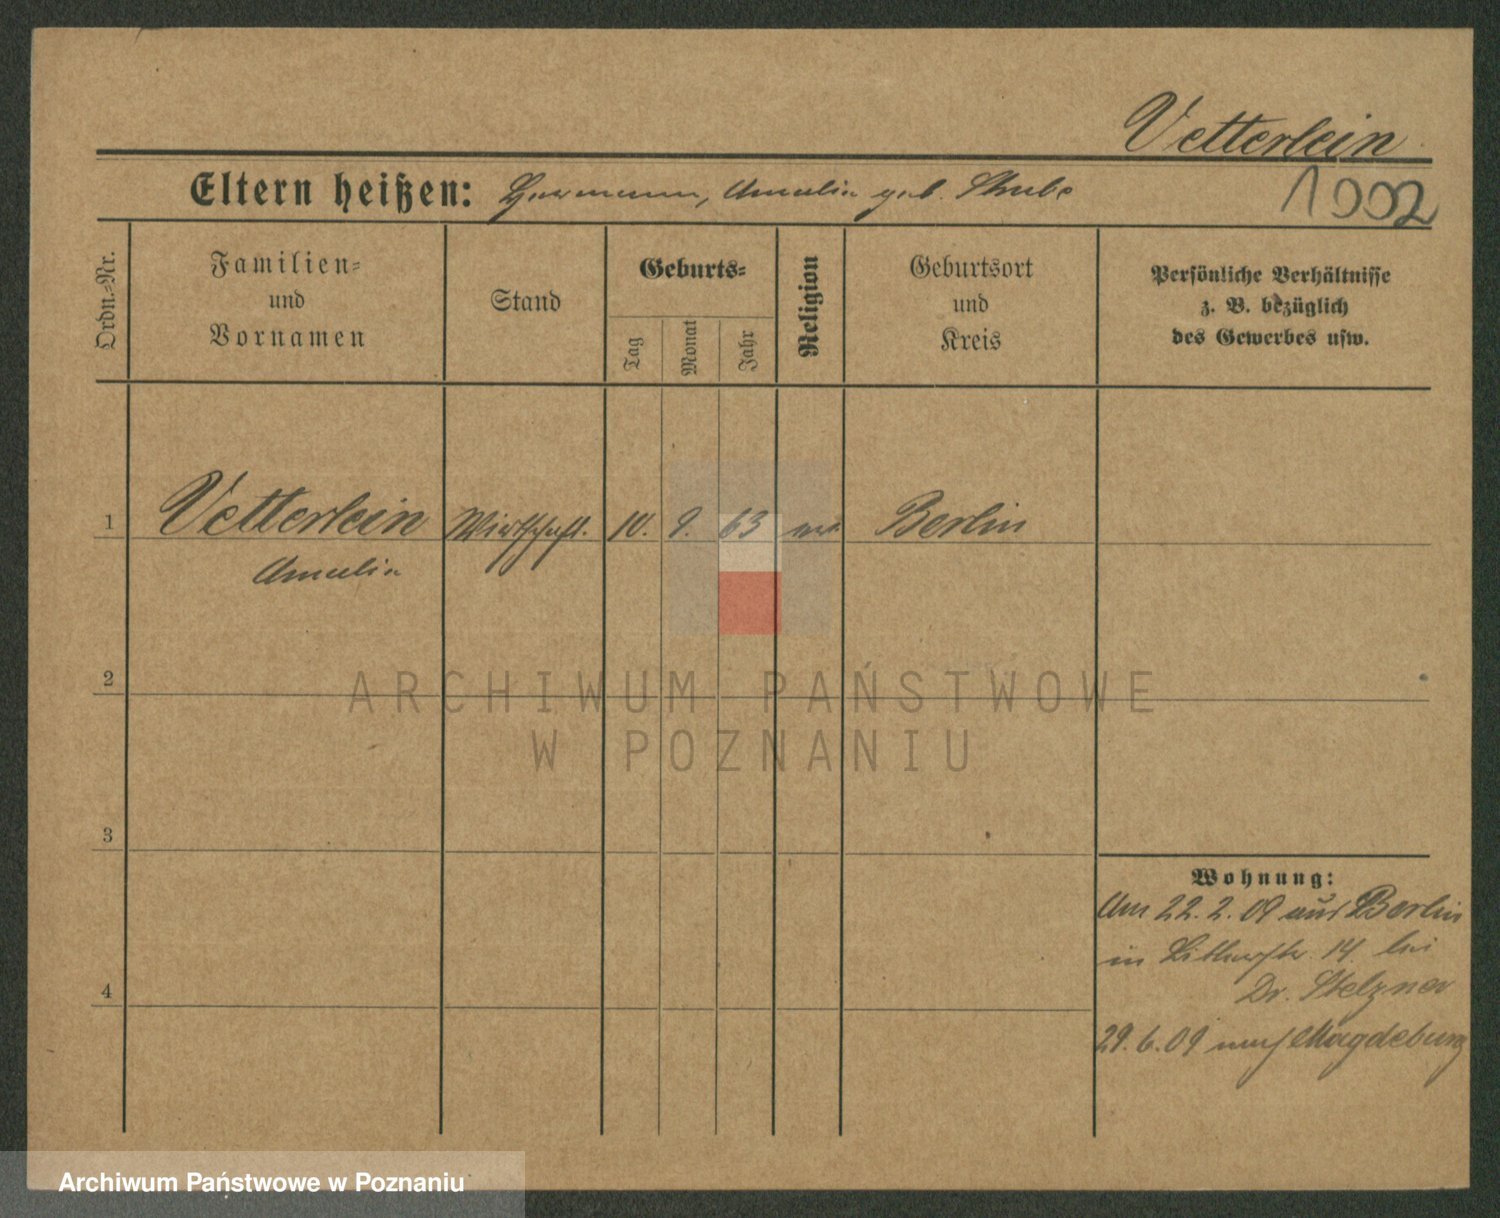 Vetterlein
Eltern heißen: Hermann, Amalie geb. Stube
1002
Ordn.-Nr.
Familien-
und
Vornamen
Stand
Geburts-
Tag
Monat
Jahr
Religion
Geburtsort
und
Kreis
Persönliche Verhältnisse
z. B. bezüglich
des Gewerbes usw.
1 Vetterlein Wirtschaft. 10. 9. 63 ev. Berlin
Amalie
2
ARCHIWUM PAŃSTWOWE
W POZNANIU
3
4
Wohnung:
Am 22. 2. 09 aus Berlin
in 14. bei
Dr. Stelzner
29. 6. 09 nach Magdeburg
Archiwum Państwowe w Poznaniu